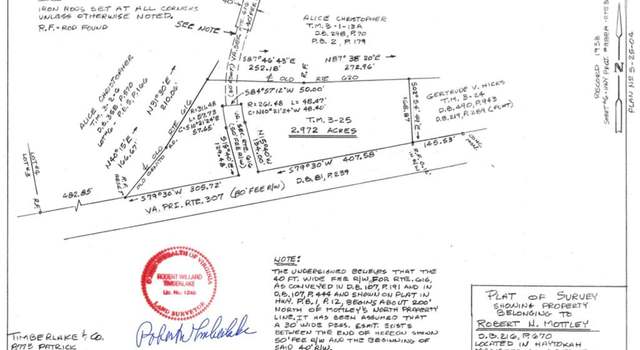 IRON RODS SET AT ALL CORNERS
UNLESS OTHERWISE NOTED.
R.F. = ROD FOUND
SEE NOTE
ALICE CHRISTOPHER
T.M. 3-1-13A
D.B. 248, P. 70
P.B. 2, P. 179
S87°46'43"E
252.18'
N87°38'20"E
272.96'
R.F.
℄ OLD RTE 630
S84°57'12"W 50.00'
ALICE CHRISTOPHER
T.M. 3-2-6
N31°30'E
210.06'
N40°15'E
166.67'
R=311.48
L=57.73
57.65'
R=261.48
L=48.47'
C=N10°21'24"W
48.40'
GERTRUDE V. HICKS
T.M. 3-24
D.B. 490, P. 943
D.B. 219, P. 289 (PLAT)
168.87'
T.M. 3-25
2.972 ACRES
LOT #6
LOT #5
482.85'
S79°30'W 305.72'
S79°30'W 407.58
145.53'
VA. PRI. RTE. 307 (80' FEE R/W)
D.B. 81, P. 239
RECORD 1938
PLAN NO S-28-04
N
COMMONWEALTH OF VIRGINIA
ROBERT WILLARD
TIMBERLAKE
LAND SURVEYOR
NOTE:
THE UNDERSIGNED BELIEVES THAT THE
40 FT. WIDE FEE R/W, FOR RTE. 616,
AS CONVEYED IN D.B. 107, P. 191 AND IN
D.B. 107, P. 444 AND SHOWN ON PLAT IN
HWY. P.B. 1, P. 12, BEGINS ABOUT 200'
NORTH OF MOTTLEY'S NORTH PROPERTY
LINE. IT HAS BEEN ASSUMED THAT
A 30' WIDE PRES. ESMT. EXISTS
BETWEEN THE END OF HEREON SHOWN
50' FEE R/W AND THE BEGINNING OF
SAID 40' R/W.
PLAT OF SURVEY
SHOWING PROPERTY
BELONGING TO
ROBERT N. MOTTLEY
D.B. 216, P. 670
LOCATED IN HAYTOKAH
TIMBERLAKE & CO.
8775 PATRICK